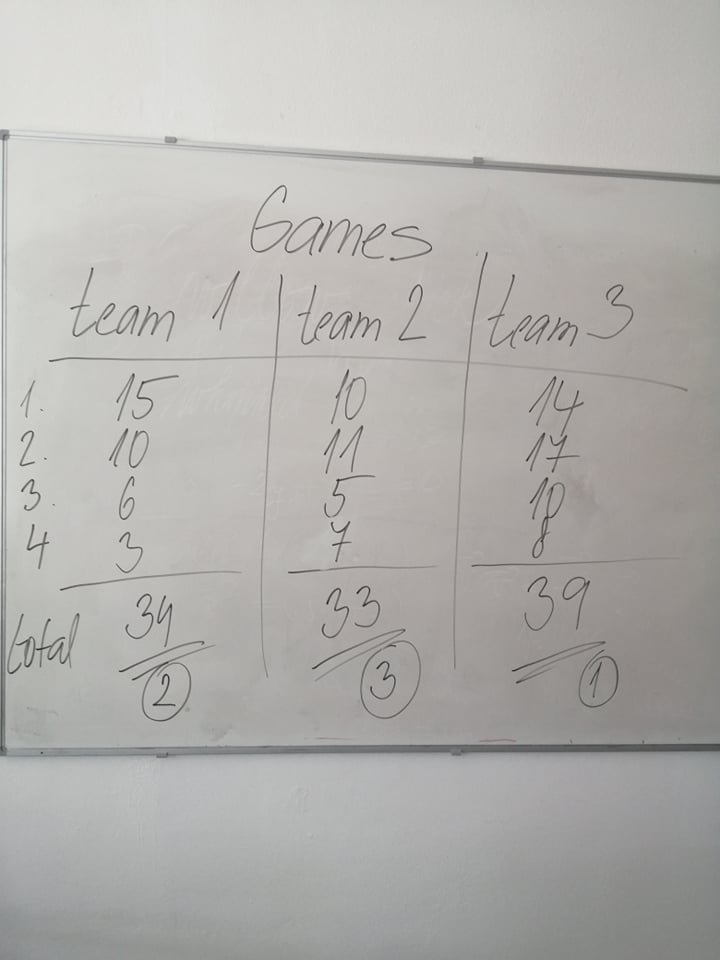 Games
team 1 team 2 team 3
1. 15 10 14
2. 10 11 17
3. 6 5 10
4 3 7 8
total 34 33 39
2 3 1